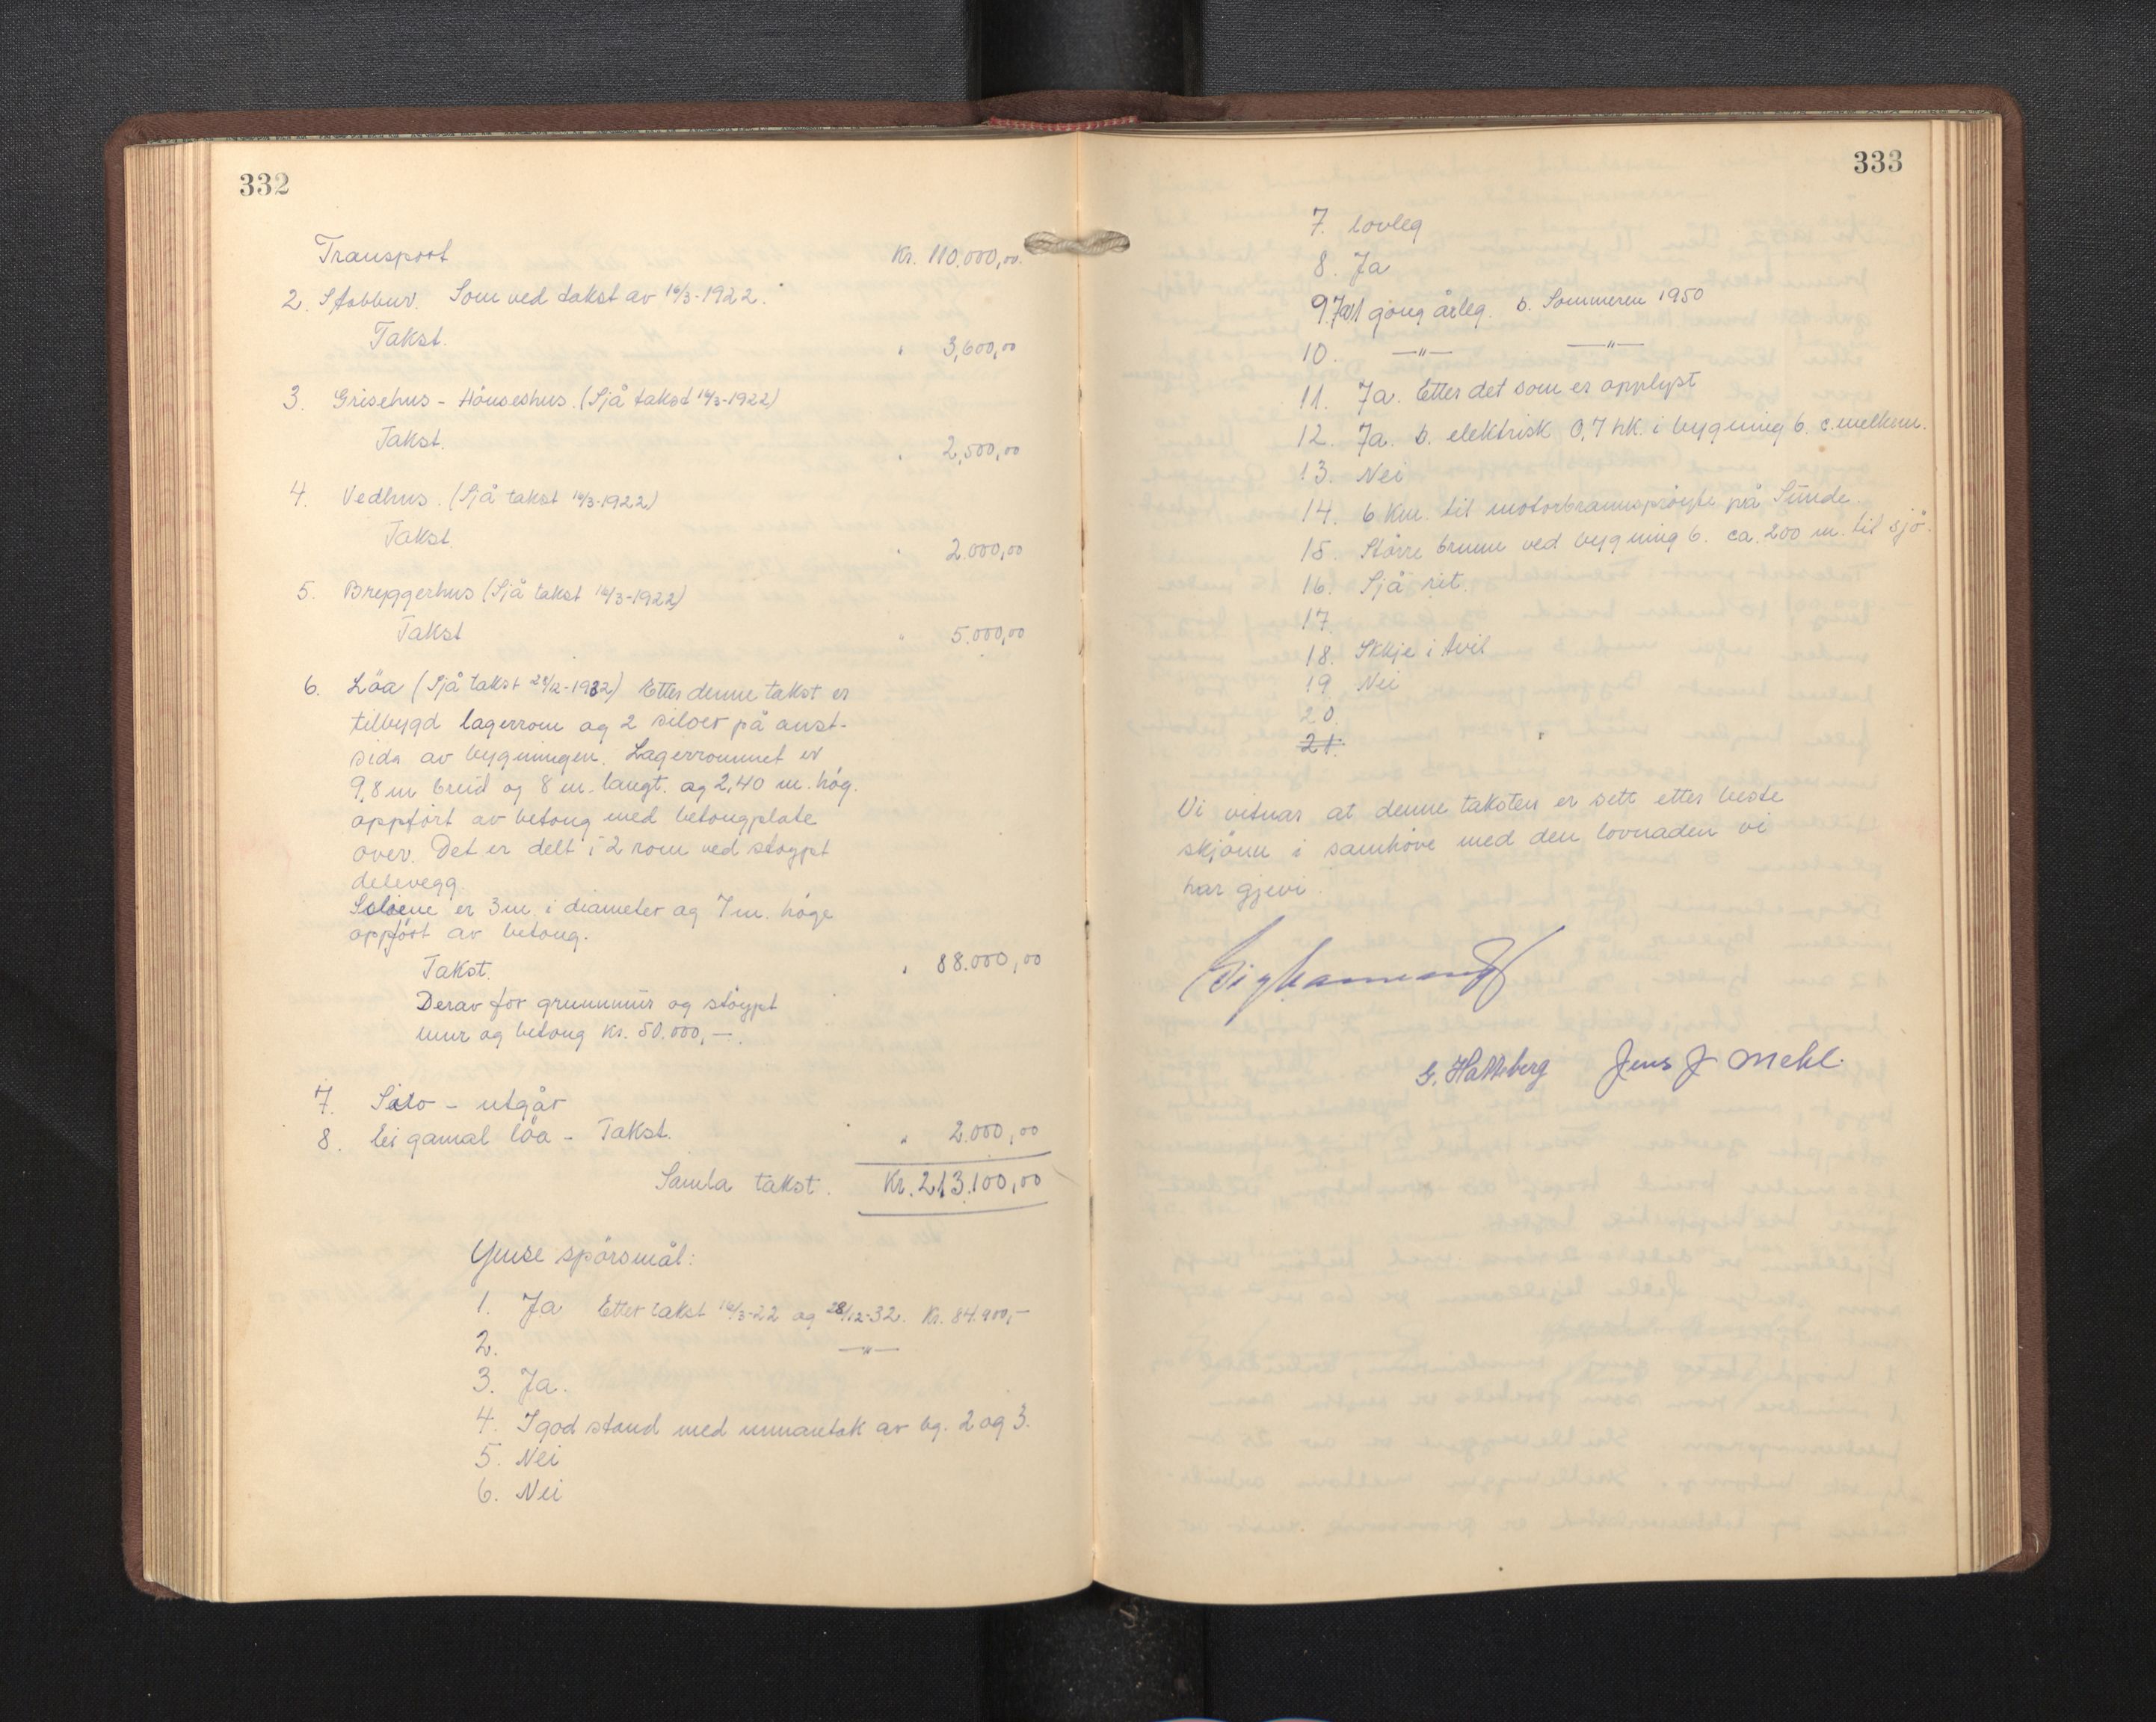 332
Transport Kr. 110.000,00.
2. Stabbur. Som ved takst av 16/3-1922.
Takst. " 3,600,00
3. Grisehus - Hönseshus. (Sjå takst 16/3-1922)
Takst. " 2,500,00
4. Vedhus. (Sjå takst 16/3-1922)
Takst " 2.000,00
5. Bryggerhus (Sjå takst 16/3-1922)
Takst " 5.000,00
6. Löa (Sjå takst 28/12-1932) Etter denne takst er
tilbygd lagerrom og 2 siloer på aust-
sida av bygningen. Lagerrommet er
9,8 m breid og 8 m. langt. og 2,40 m. hög.
oppfört av betong med betongplate
over. Det er delt i 2 rom ved stöypt
delevegg.
Siloene er 3 m. i diameter og 7 m. höge
oppfört av betong.
Takst. " 88.000,00
Derav for grunnmur og stöypt
mur og betong Kr. 50.000,—.
7. Silo - utgår
8. Ei gamal löa - Takst. " 2.000,00
Samla takst. Kr. 213.100,00
Ymse spörsmål:
1. Ja Etter takst 16/3-22 og 28/12-32. Kr. 84.900,-
2. —"—
3. Ja.
4. I god stand med unnantak av bg. 2 og 3.
5. Nei
6. Nei
333
7. lovleg
8. Ja
9. Ja 1 gong årleg. b. Sommeren 1950
10. —"— —"—
11. Ja. Etter det som er opplyst
12. Ja. b. elektrisk 0,7 hk. i bygning 6. c. melkem.
13. Nei
14. 6 Km. til motorbrannspröyte på Sunde.
15. Större brunn ved bygning 6. ca. 200 m. til sjö.
16. Sjå rit.
17.
18. Ikkje i tvil
19. Nei
20.
21.
Vi vitnar at denne taksten er sett etter beste
skjönn i samhöve med den lovnaden vi
har gjevi.
G. Hatteberg Jens J Mehl.